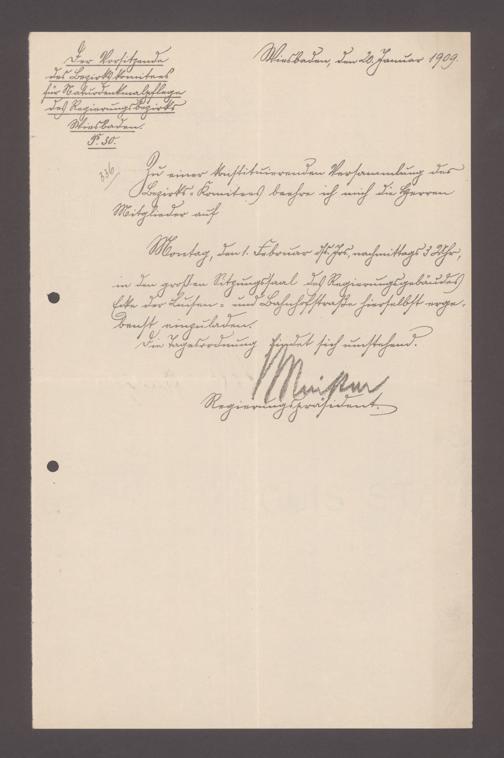 Der Vorsitzende
des Bezirkskomitees
für Naturdenkmalpflege
des Regierungsbezirks
Wiesbaden.
P. 30.
Wiesbaden, den 20. Januar 1909.
336
Zu einer konstituierenden Versammlung des
Bezirks-Komitees beehre ich mich die Herren
Mitglieder auf
Montag, den 1. Februar ds. Jrs, nachmittags 3 Uhr,
in den großen Sitzungssaal des Regierungsgebäudes
Ecke der Luisen- und Bahnhofstraße hierselbst erge-
benst einzuladen.
Die Tagesordnung findet sich umstehend.
Meister
Regierungspräsident.